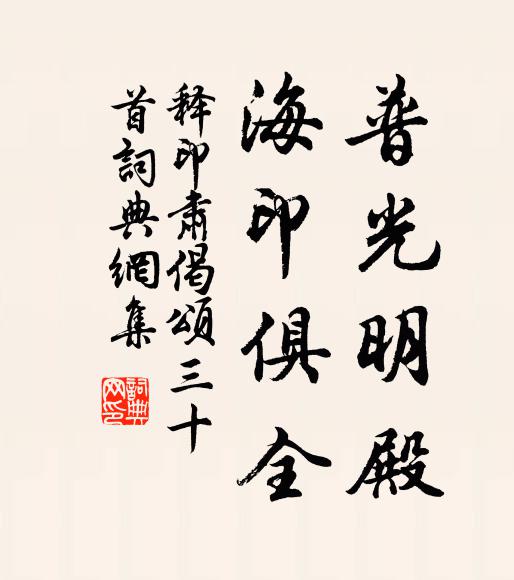 普光明殿
海印俱全
释印肃偈颂三十
首詞典網集
詞典网印